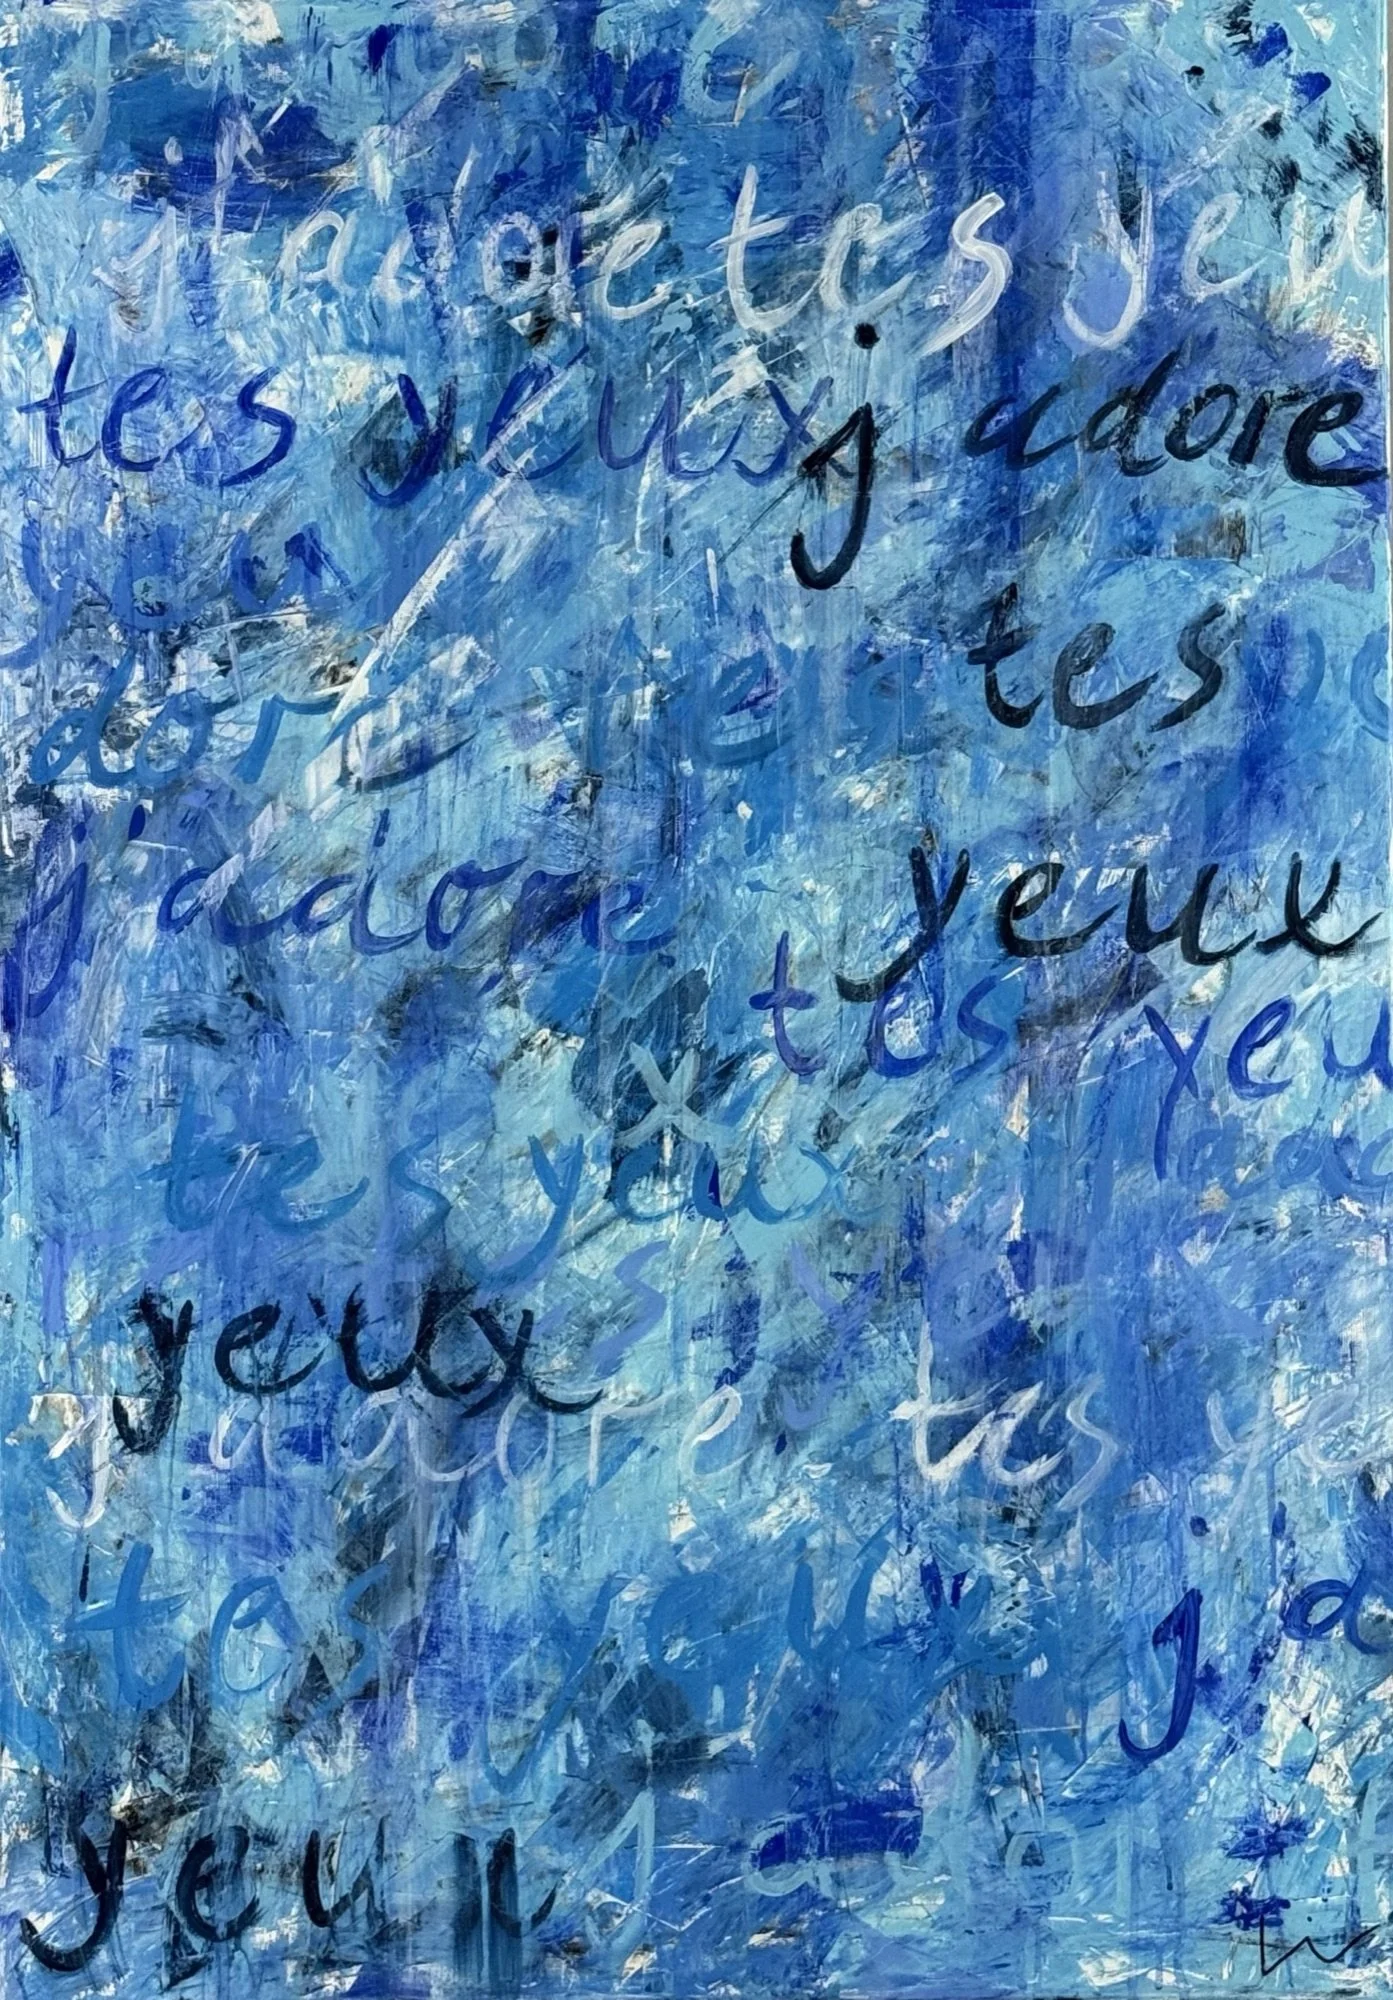 j'adore tes yeu
tes yeux j adore
yeu
dore tes
tes
j'adore yeux
tes yeu
tes yeux
s yeux
yeux
j adore tes ye
tes yeux j
yeu